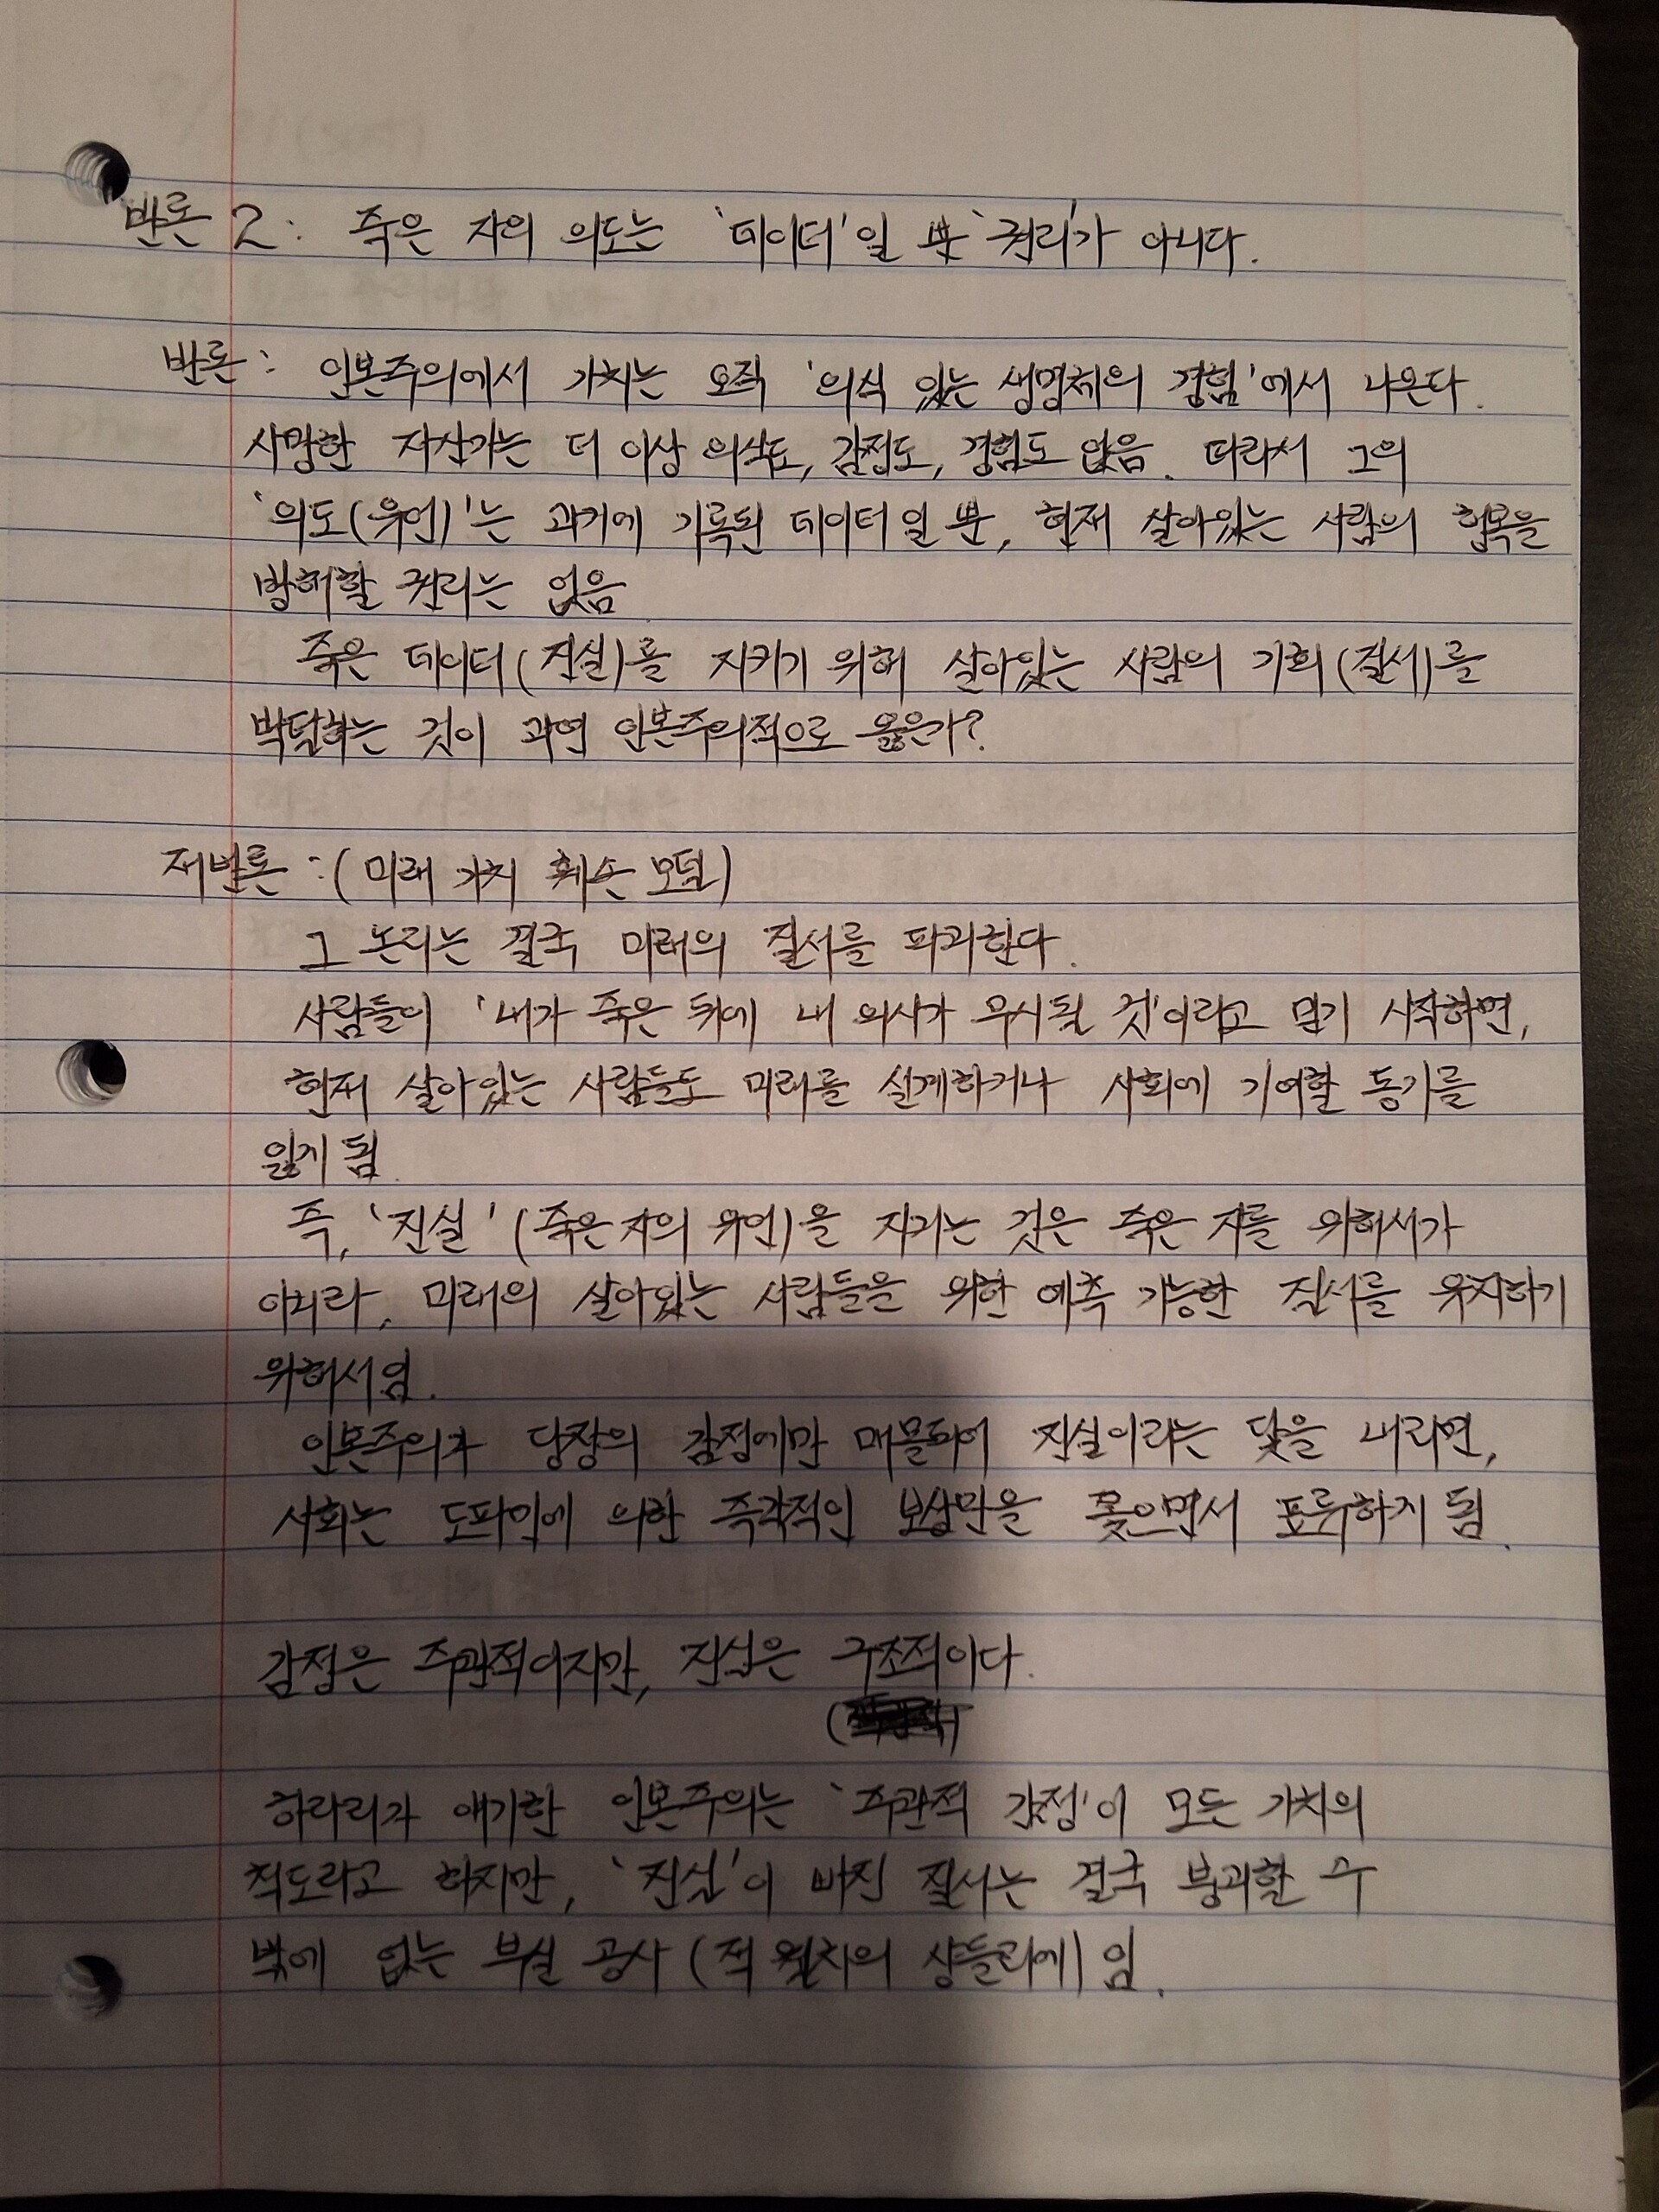 반론 2: 죽은 자의 의도는 '데이터'일 뿐 '권리'가 아니다.
반론: 인본주의에서 가치는 오직 '의식 있는 생명체의 경험'에서 나온다.
사망한 자산가는 더 이상 의식도, 감정도, 경험도 없음. 따라서 그의
'의도(유언)'는 과거에 기록된 데이터일 뿐, 현재 살아있는 사람의 행복을
방해할 권리는 없음
죽은 데이터(진실)를 지키기 위해 살아있는 사람의 기회(질서)를
박탈하는 것이 과연 인본주의적으로 옳은가?
재반론: (미래 가치 훼손 모델)
그 논리는 결국 미래의 질서를 파괴한다.
사람들이 '내가 죽은 뒤에 내 의사가 무시될 것'이라고 믿기 시작하면,
현재 살아있는 사람들도 미래를 설계하거나 사회에 기여할 동기를
잃게 됨.
즉, '진실' (죽은 자의 유언)을 지키는 것은 죽은 자를 위해서가
아니라, 미래의 살아있는 사람들을 위한 예측 가능한 질서를 유지하기
위해서임.
인본주의가 당장의 감정에만 매몰되어 진실이라는 닻을 내리면,
사회는 도파민에 의한 즉각적인 보상만을 쫓으면서 표류하게 됨.
감정은 주관적이지만, 진실은 구조적이다.
하라리가 얘기한 인본주의는 '주관적 감정'이 모든 가치의
척도라고 하지만, '진실'이 빠진 질서는 결국 붕괴할 수
밖에 없는 부실 공사 (적 월차의 샹들리에)임.